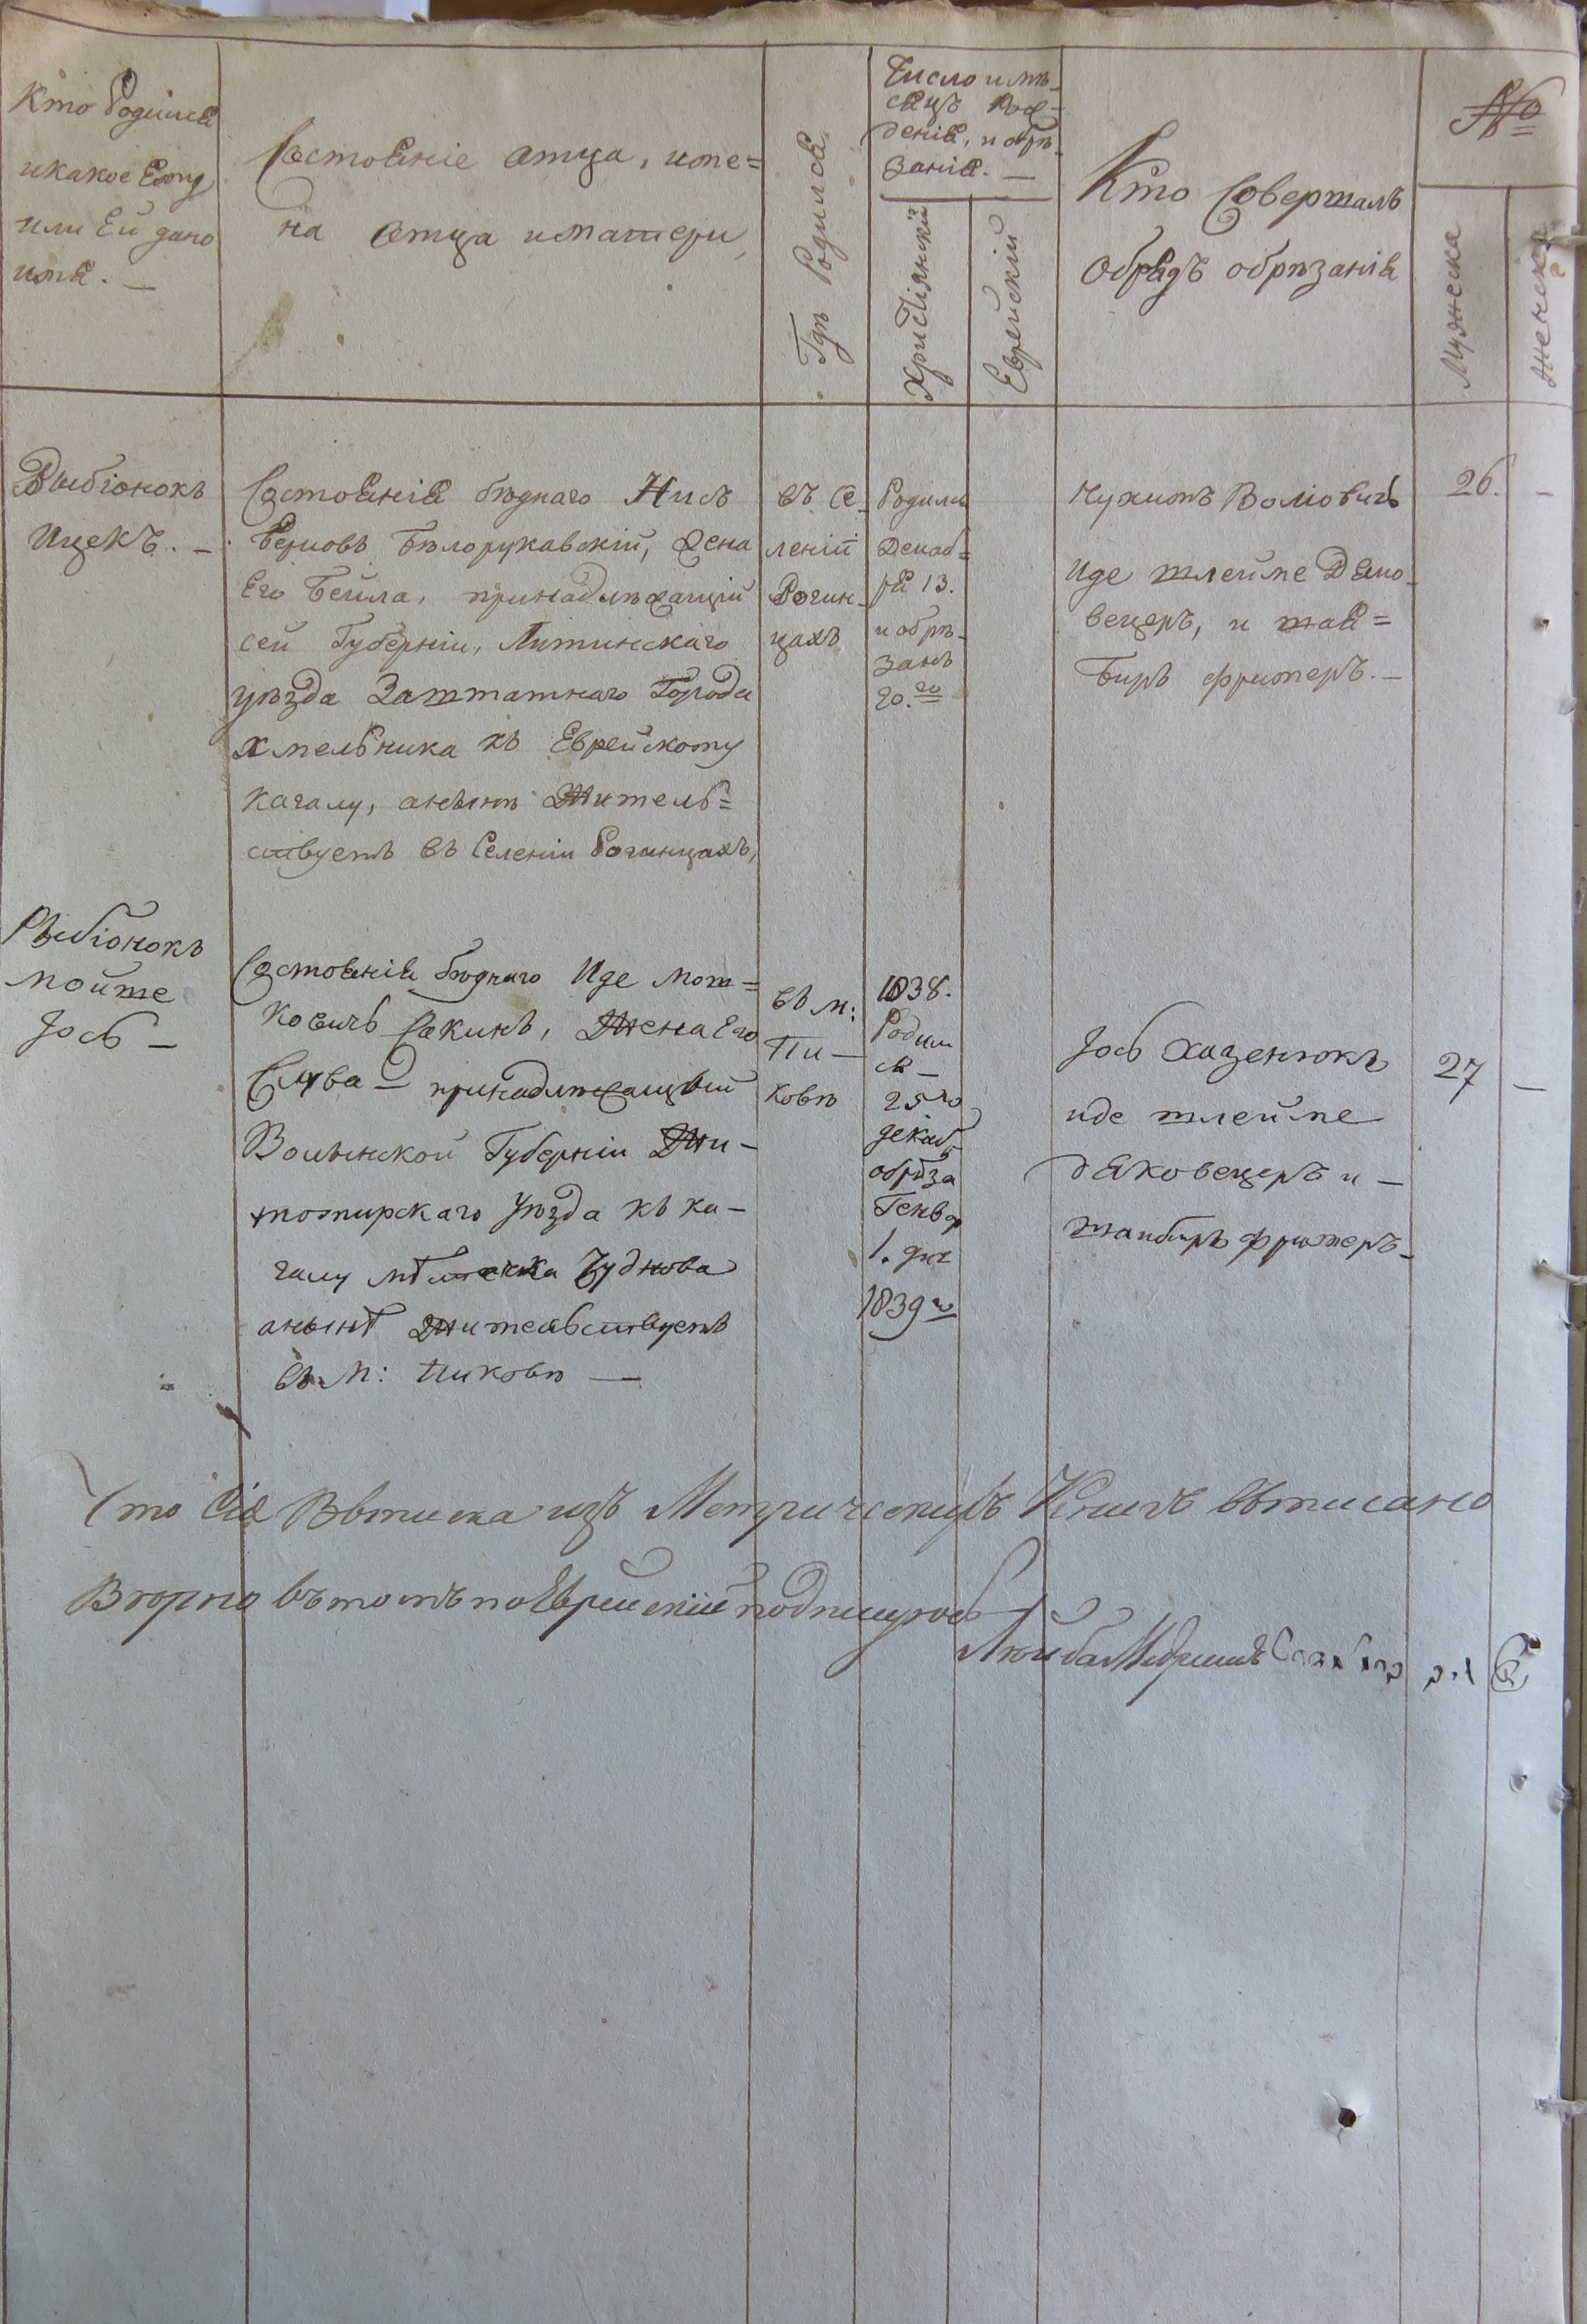 Кто Родился
икакое Ему
или Ей дано
имя. —
Состояніе отца, име=
на отца иматери,
Гдѣ Родился
Число имѣ-
сяцъ Рож-
денія, и обрѣ-
занія. —
Христіянкій
Еврейскій
Кто Совершалъ
обрядъ обрѣзанія
№
Мужеска
Женска
Рыбіонокъ
Ицекъ. —
Состоянія бѣднаго Нисъ
Берковъ Бѣлорукавскій, жена
Его Бейла, принадлѣжащій
сей Губерніи, Литинскаго
уѣзда Заштатнаго Города
Хмельника къ Еврейскому
кагалу, анынѣ Житель=
ствуетъ въ Селеніи Рогинцахъ,
въ Се-
леніи
Рогин-
цахъ
Родился
Декаб=
ря 13.
и обрѣ-
занъ
20.го
Нухимъ Волковичъ
Иде шлейме Дяко-
вецеръ, и шая=
Беръ фришеръ. —
26. —
Рыбіонокъ
Мойше
Іось —
Состоянія бѣднаго Иде Мош=
ковичъ Сякинъ, Жена Его
Слува — принадлѣжащый
Волынской Губерніи Жи-
томирскаго Уѣзда къ ка-
галу мѣстечка Чуднова
анынѣ Жительствуетъ
въ М: Пиковѣ —
въ м:
Пи —
ковѣ
1838.
Родил
ся —
25го
декаб
обрѣза
Генвар
1. дня
1839го
Іось Хазенюкъ
иде шлейме
дяковецеръ и —
шаибиръ фришеръ —
27 —
Что сія Выписка изъ Метрическихъ Книгъ выписано
Вѣрно въ томъ по Еврейскій подпишусь